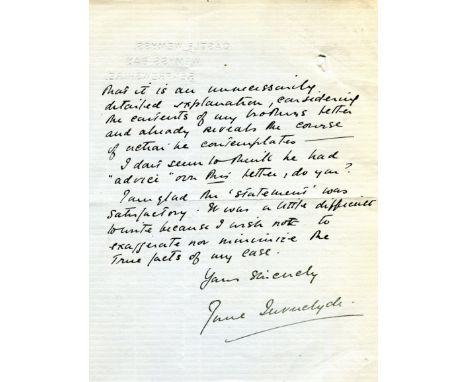 CASTLE WEMYSS,
WEMYSS BAY
RENFREWSHIRE.
that it is an unnecessarily
detailed explanation, considering
the contents of my brothers letter
and already reveals the course
of action he contemplates —
I don't seem to think he had
"advice" over this letter, do you?
I am glad the 'statement' was
satisfactory. It was a little difficult
to write because I wish not to
exaggerate nor minimize the
true facts of my case.
Yours sincerely
June Inverclyde.